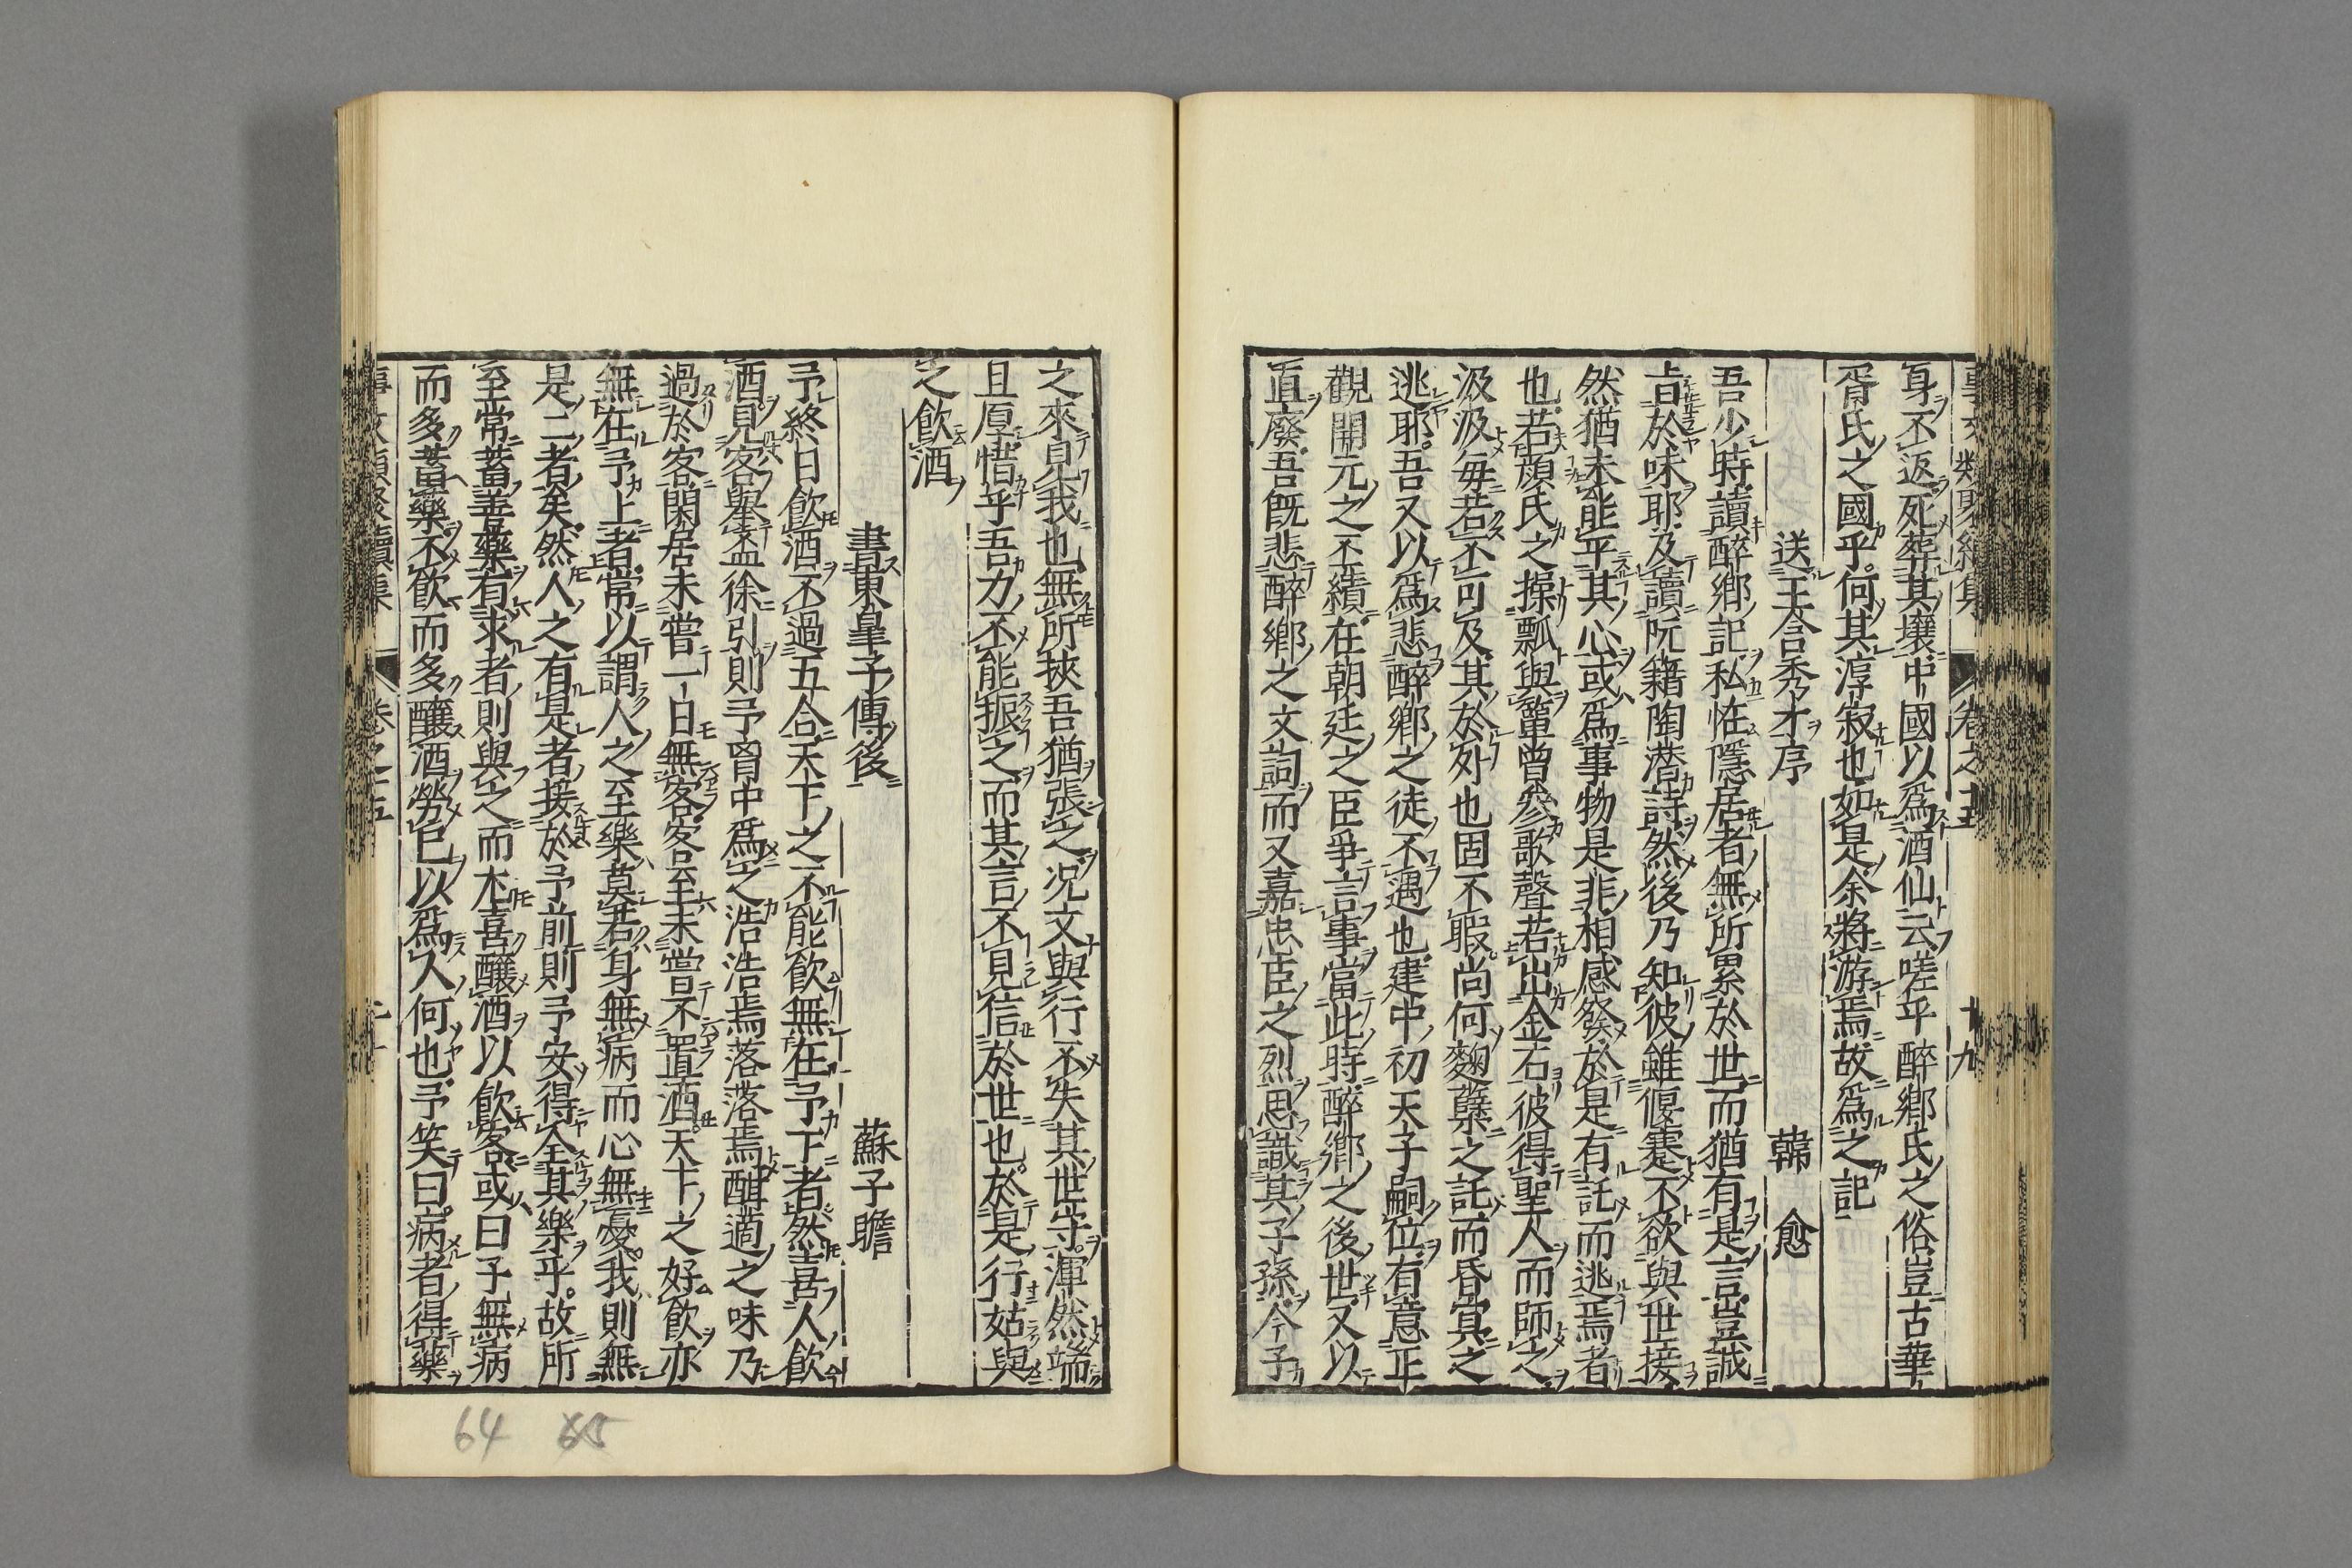 事文類聚續集 卷之十五 十九
身不返死葬其壤中國以爲酒仙云嗟乎醉鄉氏之俗豈古華
胥氏之國乎何其淳寂也如是余將游焉故爲之記
送王含秀才序 韓愈
吾少時讀醉鄉記私怪隱居者無所累於世而猶有是言豈誠
旨於味耶及讀阮籍陶潜詩然後乃知彼雖偃蹇不欲與世接
然猶未能平其心或爲事物是非相感發於是有託而逃焉者
也若顏氏之操瓢與簞曾參歌聲若出金石彼得聖人而師之
汲汲每若不可及其於外也固不暇尚何麴糵之託而昏冥之
逃耶吾又以爲悲醉鄉之徒不遇也建中初天子嗣位有意正
觀開元之丕績在朝廷之臣爭言事當此時醉鄉之後世又以
直廢吾既悲醉鄉之文詞而又嘉忠臣之烈思識其子孫今子
之來見我也無所挾吾猶張之况文與行不失其世守渾然端
且厚惜乎吾力不能振之而其言不見信於世也於是行姑與
之飲酒
書東皐子傳後 蘇子瞻
予終日飲酒不過五合天下之不能飲無在予下者然喜人飲
酒見客舉盃徐引則予胷中爲之浩浩焉落落焉酣適之味乃
過於客閑居未嘗一日無客客至未嘗不置酒天下之好飲亦
無在予上者常以謂人之至樂莫若身無病而心無憂我則無
是二者矣然人之有是者接於予前則予安得全其樂乎故所
至常蓄善藥有求者則與之而尤喜釀酒以飲客或曰子無病
而多蓄藥不飲而多釀酒勞己以爲人何也予笑曰病者得藥
事文類聚續集 卷之十五 二十
64 65